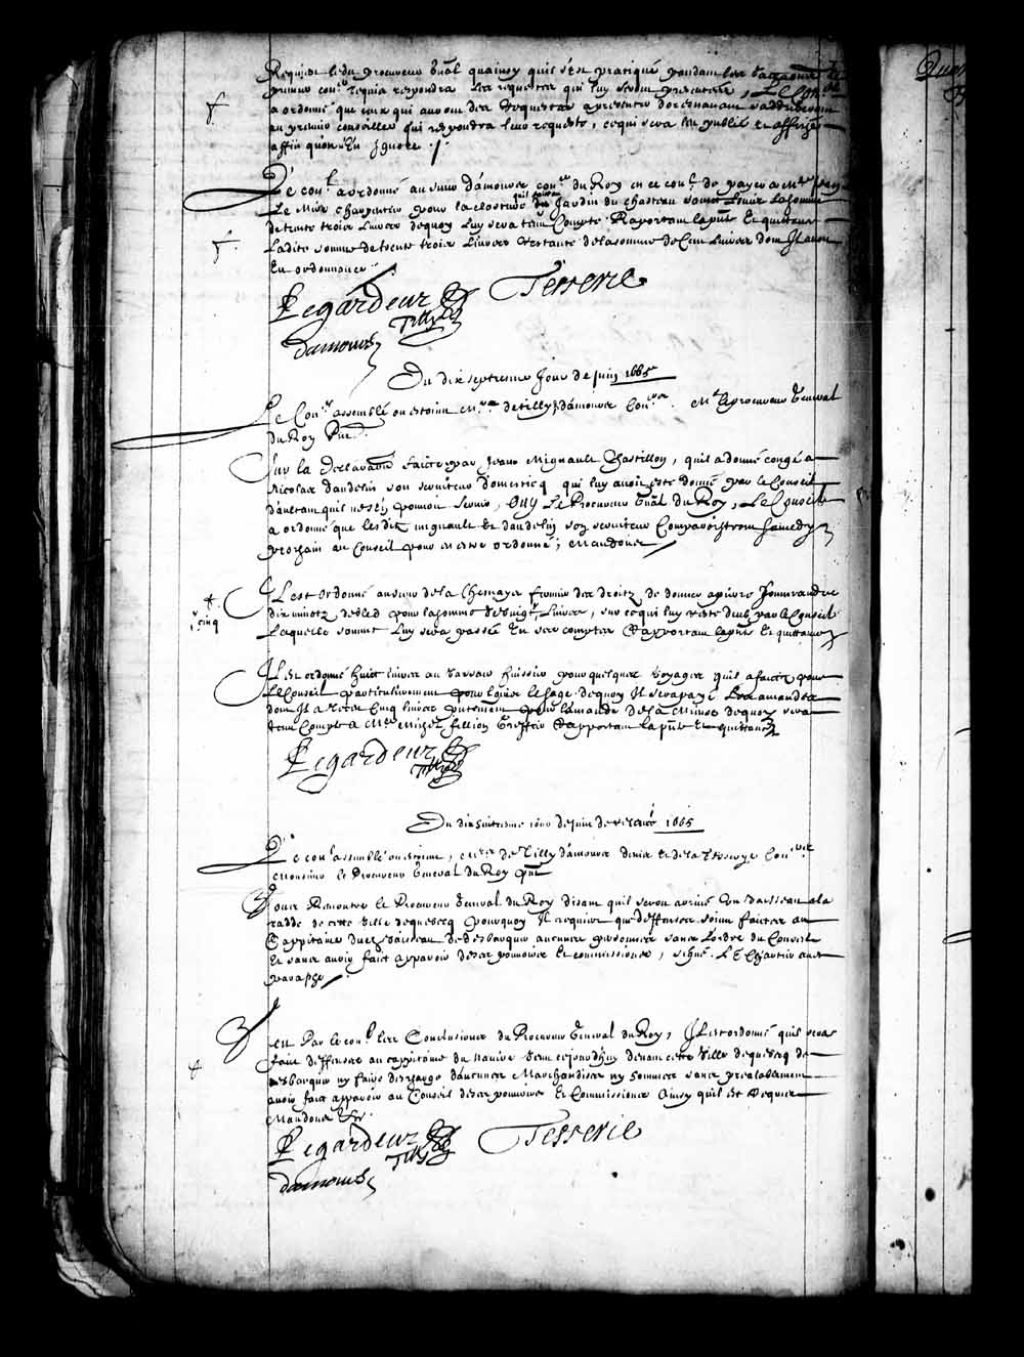 Requiert led. procureur gñal quainsy quil s'est pratiqué pendant les vaccaons le
premier conr. respondra les requestes qui luy seront presentées, Le Conel
a ordonné que ceux qui auront des requestes a presenter doresnavant s'addresseront
au premier conseiller qui respondra leur requeste, ce qui sera leu publié et affiché
affin quon n'en Ignore ./.
Le conel. a ordonné au sieur d'amours coner du Roy en ce conel. de payer a Mre
Le Mire charpentier pour la closture du Jardin du chasteau sainct Louis la somme
quil faict
de trente trois livres dequoy luy sera tenu Compte Raportant la pñte et quittance
ladite somme de trente trois Livres restante de la somme de Cent Livres dont Il avoit
Eu ordonnance
Legardeur Tesserie
Tilly
damours
Du dix septiesme Jour de Juin 1665
Le Conel assemblé ou estoient Mrs de Tilly, d'amours Coners. Mr le procureur General
du Roy Pnt
Sur la declaraon faicte par Jean Mignault Chastillon, quil a donné congé a
Nicolas daudelin son serviteur domesticq qui luy avoit esté donné par le Conseil
d'autant quil n'est en pouvoir servir, Ouy Le Procureur gñal du Roy, Le Conseil
a ordonné que lesdits mignault et daudelin son serviteur Comparoistront Samedy
prochain au Conseil pour en estre ordonné; Mandons
Il est ordonné au sieur de la Chesnaye fermier des droits de donner a pierre
dix minotz de bled pour la somme de vingt Livres, sur ce qui luy reste deub par le Conseil
Laquelle somme luy sera passée En ses comptes Rapportant la pñte et quittance
cinq
Il est ordonné huict livres au pour quelques voyages quil a faicts pour
Le Conseil particulierement dequoy Il sera payé des amandes
dont Il a receu Cinq livres de la dequoy sera
tenu Compte a Mre Michel fillion Greffier Rapportant la pñte et quittance
Legardeur
Tilly
Du dix huictiesme Jour de Juin de relevée 1665
Le conel assemblé ou estoient, Mrs de Tilly d'amours denis et de la Tesserye Coners
Monsieur le Procureur General du Roy pñt
Sur Remontré le Procureur General du Roy disant quil seroit arrivé Un Vaisseau a la
radde de cette ville de quebecq pourquoy Il requiert que deffences soient faictes au
Cappitaine dud. Vaisseau de desbarquer aucunes personnes sans L'ordre du Conseil
Et sans avoir faict apparoir de ses pouvoirs Et commissions, signé. L E Chartier avec
paraphe
Veu Par le conel les Conclusions du Procureur General du Roy, Il est ordonné quil sera
faict deffenses au cappitaine du navire venu cejourdhuy devant cette ville de quebecq de
desbarquer ny faire descharge d'aucunes Marchandises ny hommes sans prealablement
avoir faict apparoir au Conseil de ses pouvoirs Et Commissions Ainsy quil est Requis
Mandons &c.
Legardeur Tesserie
Tilly
damours